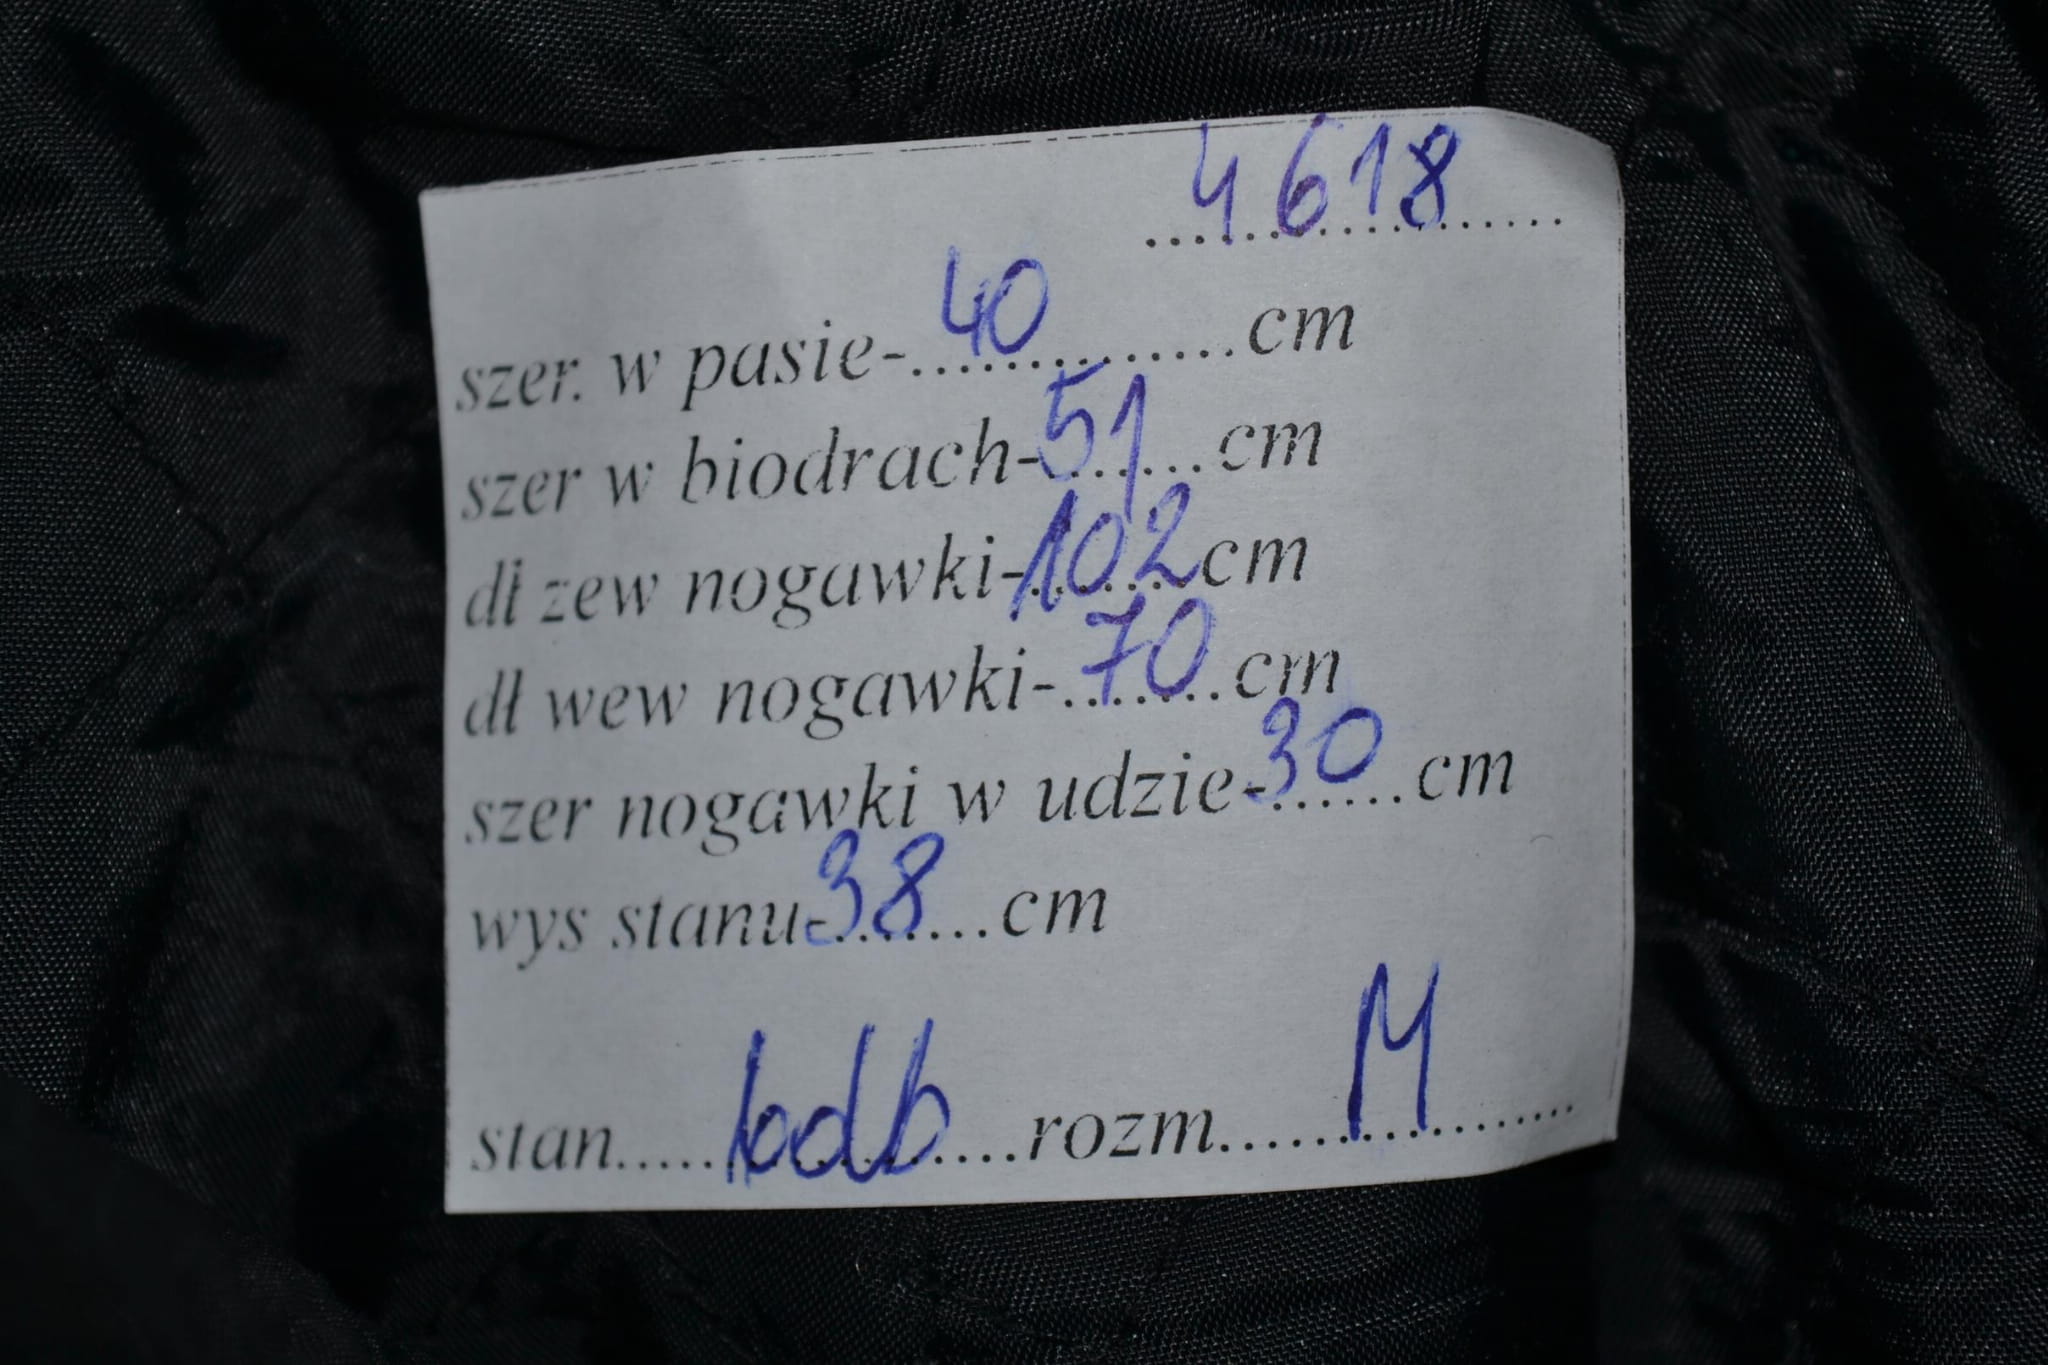 4618
szer. w pasie-40..............cm
szer w biodrach-51.......cm
dł zew nogawki-102.......cm
dł wew nogawki-70........cm
szer nogawki w udzie-30......cm
wys stanu-38........cm
stan.....bdb.....rozm....M....